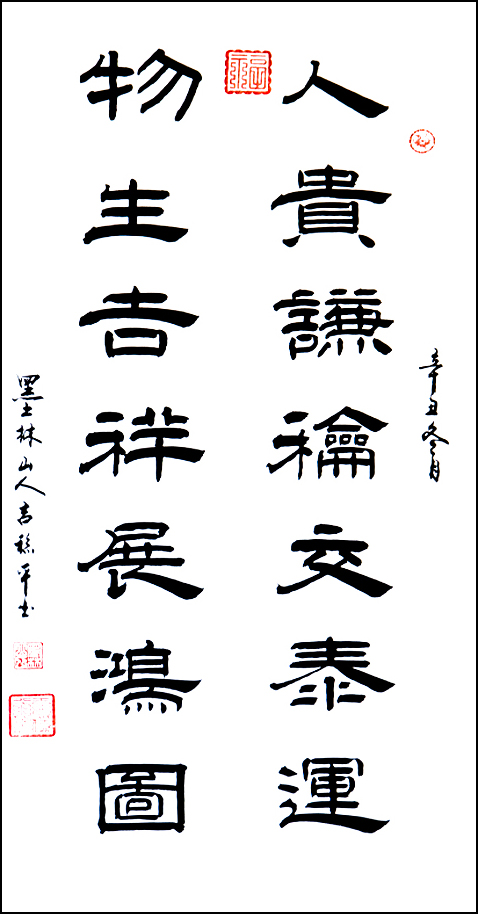 辛丑冬月
人貴謙龢交泰運
物生吉祥展鴻圖
墨林山人平书